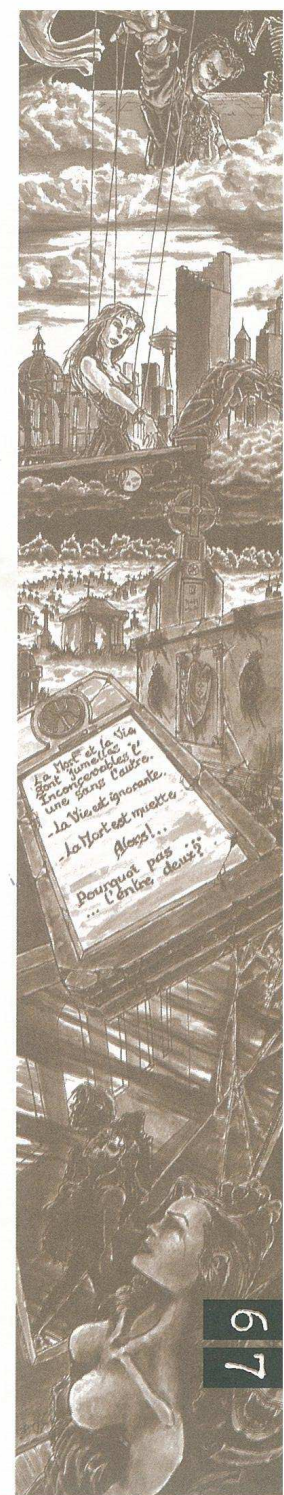 La Mort et la Vie
sont jumelles !
Inconcevables l'
une sans l'autre.
-La Vie est ignorante.
-La Mort est muette.
Alors!..
Pourquoi pas ...
... l'entre deux?
67